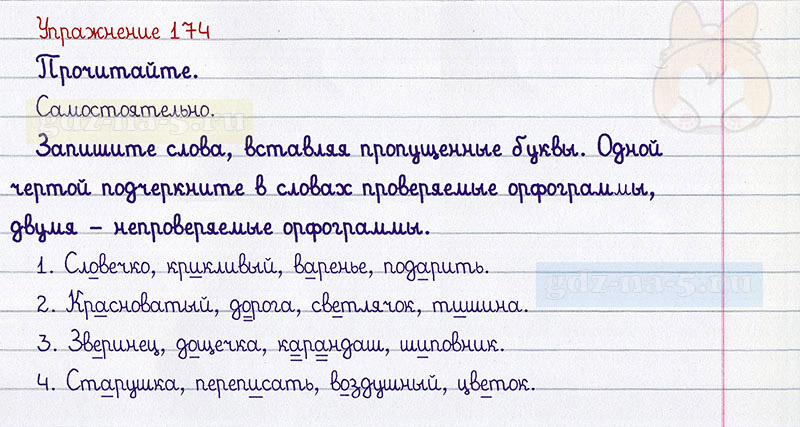 Упражнение 174
Прочитайте.
Самостоятельно.
gdz-na-5.ru
Запишите слова, вставляя пропущенные буквы. Одной
чертой подчеркните в словах проверяемые орфограммы,
двумя – непроверяемые орфограммы.
1. Словечко, крикливый, варенье, подарить.
gdz-na-5.ru
2. Красноватый, дорога, светлячок, тишина.
3. Зверинец, дощечка, карандаш, шиповник.
4. Старушка, переписать, воздушный, цветок.